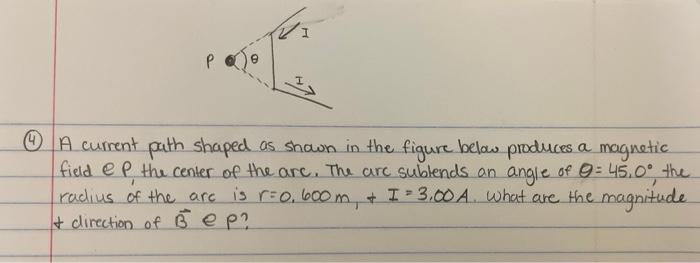 I
P θ
I
④ A current path shaped as shown in the figure below produces a magnetic
field @ P, the center of the arc. The arc subtends an angle of θ = 45.0°, the
radius of the arc is r=0.600m, + I = 3.00A. What are the magnitude
+ direction of B⃗ @ P?